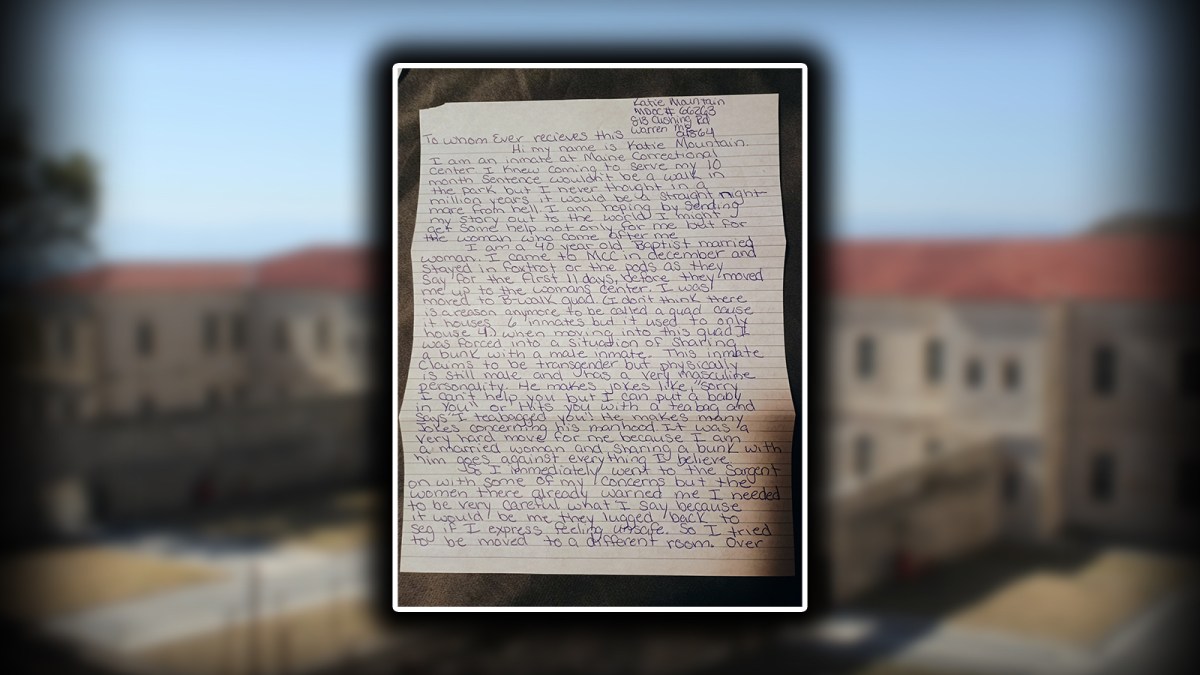 Katie Mountain
MDOC# 66263
818 Cushing Rd
Warren ME
04864
To whom Ever recieves this
Hi my name is Katie Mountain.
I am an inmate at Maine Correctional
Center I knew coming to serve my 10
month sentence wouldn't be a walk in
the park but I never thought in a
million years it would be a straight night-
mare from hell I am hoping by sending
my story out to the world I might
get some help not only for me but for
the woman who come after me
I am a 40 year old Baptist married
woman. I came to MCC in december and
stayed in Foxtrot or the pods as they
say for the first 11 days, before they moved
me up to the womans center. I was
moved to B-walk quad (I don't think there
is a reason anymore to be called a quad cause
it houses 6 inmates but it used to only
house 4) when moving into this quad I
was forced into a situation of sharing
a bunk with a male inmate. This inmate
claims to be transgender but physically
is still male and has a very masculine
personality. He makes jokes like, "sorry
I can't help you but I can put a baby
in you" or Hits you with a teabag and
says "I teabagged you" He makes many
jokes concerning his manhood It was a
very hard move for me because I am
a married woman and sharing a bunk with
him goes against everything I believe
So I immediately went to the Sargent
on with some of my concerns but the
women there already warned me I needed
to be very careful what I say because
it would be me they lugged back to
seg if I express feeling unsafe. So I tried
to be moved to a different room. Over